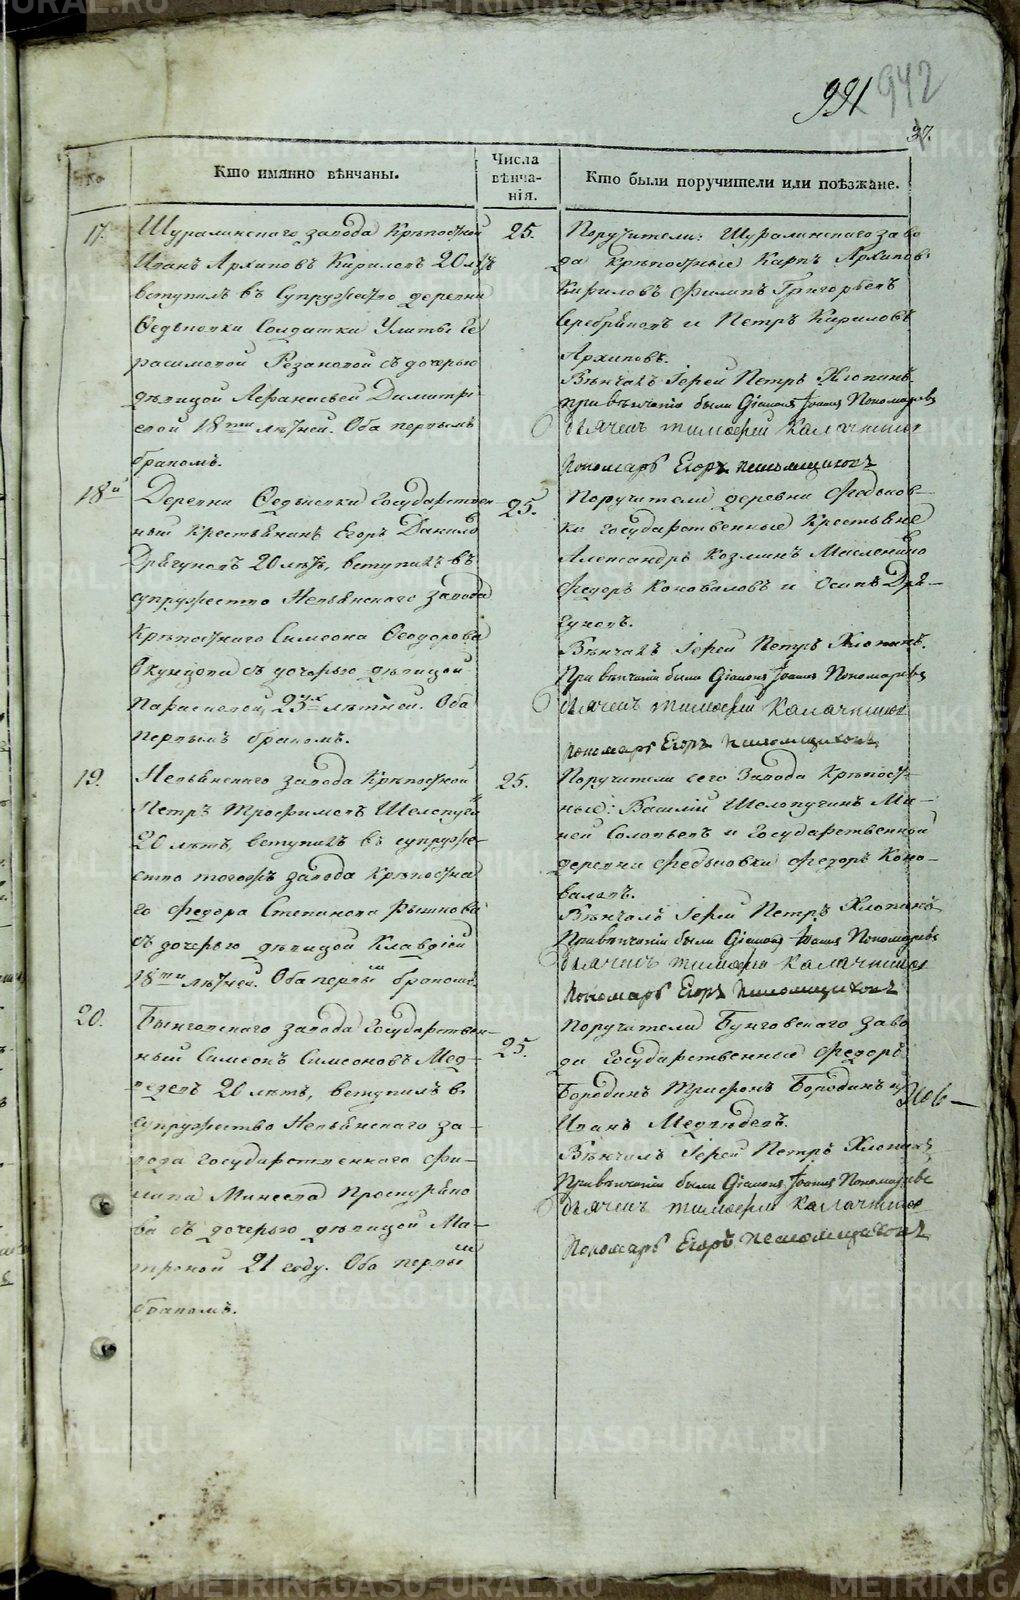 991 942
37.
Кто имянно вѣнчаны.
Числа вѣнча-нія.
Кто были поручители или поѣзжане.
17.
Шуралинскаго завода крѣпостной
Иванъ Архиповъ Кириловъ 20 лѣтъ
вступилъ въ супружество деревни
Ѳедьковки Солдатки Улиты Ге
расимовой Резановой съ дочерью
дѣвицой Аѳанасьей Димитрі
евой 18ти лѣтней. Оба первымъ
бракомъ.
25.
Поручители: Шуралинскаго заво
да крѣпостные Карпъ Архиповъ
Кириловъ Филипъ Григорьевъ
Серебряковъ и Петръ Кириловъ
Архиповъ.
Вѣнчалъ Іерей Петръ Хлопинъ.
При вѣнчаніи были Діаконъ Іоаннъ Пономаревъ
дьячекъ Тимофей Калачниковъ
Пономарь Егоръ
18й
Деревни Ѳедьковки Государствен
ный крестьянинъ Егоръ Данило
Дрягуновъ 20 лѣтъ, вступилъ въ
супружество Невьянскаго завода
крѣпостнаго Симеона Ѳеодорова
съ дочерью дѣвицой
Параскевой, 23ухъ лѣтней. Оба
первымъ бракомъ.
25.
Поручители деревни Федьков-
ки Государственные Крестьяне
Александръ Козминъ Масленико
въ
Федоръ Коноваловъ и Осипъ Дря-
гуновъ.
Вѣнчалъ Іерей Петръ Хлопинъ.
При вѣнчаніи были Діаконъ Іоаннъ Пономаревъ
дьячекъ Тимофей Калачниковъ
Пономарь Егоръ
19.
Невьянскаго завода крѣпостной
Петръ Трофимовъ Шелопуги
20 лѣтъ, вступилъ въ супруже-
ство тогожъ завода крѣпостна
го Федора Степанова
съ дочерью дѣвицой Клавдіей
18ти лѣтней. Оба первымъ бракомъ.
25.
Поручители сего Завода крѣпост-
ные: Василій Шелопугинъ Ма-
кей Соловьевъ и Государственной
деревни Федьковки Федоръ Коно-
валовъ.
Вѣнчалъ Іерей Петръ Хлопинъ
При вѣнчаніи были Діаконъ Іоаннъ Пономаревъ
дьячекъ Тимофей Калачниковъ
Пономарь Егоръ
20.
Бынговскаго завода Государствен-
ный Симеонъ Симеоновъ Мед-
ведевъ 20 лѣтъ, вступилъ въ
супружество Невьянскаго за-
вода Государственнаго Фи-
липа Минеева Проскуряко
ва съ дочерью дѣвицой Ма-
троной 21 году. Оба первымъ
бракомъ.
25.
Поручители Бынговскаго заво
да Государственные Федоръ
Бородинъ Трифонъ Бородинъ и
Иванъ Медведевъ.
Вѣнчалъ Іерей Петръ Хлопинъ
При вѣнчаніи были Діаконъ Іоаннъ Пономаревъ
дьячекъ Тимофей Калачниковъ
Пономарь Егоръ
METRIKI.GASO-URAL.RU